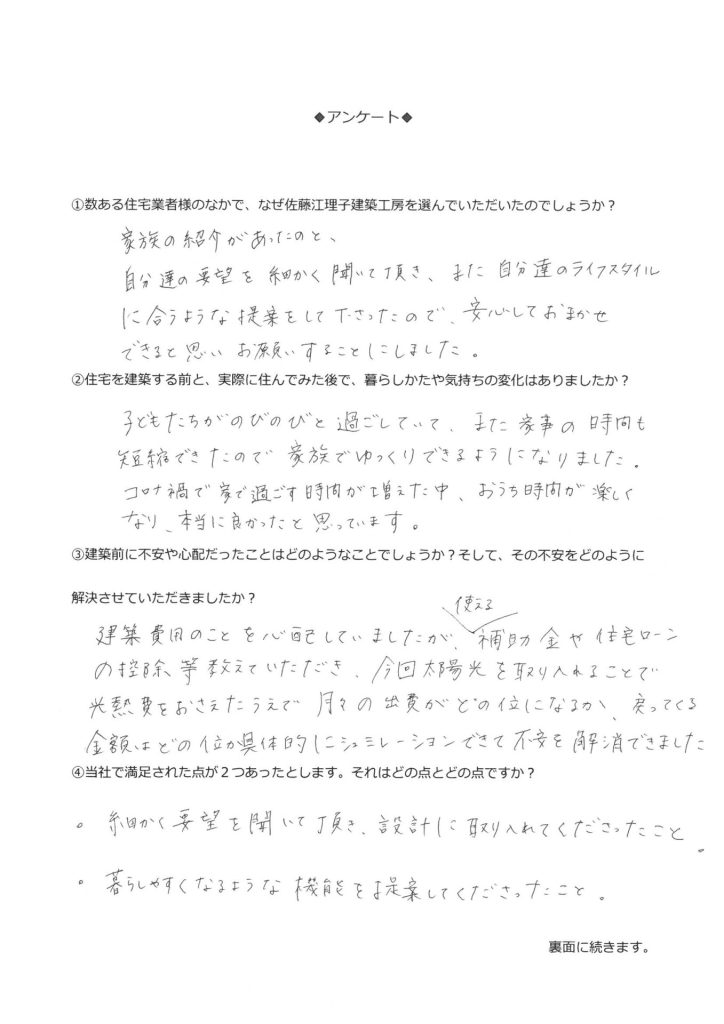 ◆アンケート◆
①数ある住宅業者様のなかで、なぜ佐藤江理子建築工房を選んでいただいたのでしょうか？
家族の紹介があったのと、
自分達の要望を細かく聞いて頂き、また自分達のライフスタイル
に合うような提案をして下さったので、安心しておまかせ
できると思いお願いすることにしました。
②住宅を建築する前と、実際に住んでみた後で、暮らしかたや気持ちの変化はありましたか？
子どもたちがのびのびと過ごしていて、また家事の時間も
短縮できたので家族でゆっくりできるようになりました。
コロナ禍で家で過ごす時間が増えた中、おうち時間が楽しく
なり、本当に良かったと思っています。
③建築前に不安や心配だったことはどのようなことでしょうか？そして、その不安をどのように
解決させていただきましたか？
使える
建築費用のことを心配していましたが、補助金や住宅ローン
の控除等教えていただき、今回太陽光を取り入れることで
光熱費をおさえたうえで月々の出費がどの位になるか、戻ってくる
金額はどの位か具体的にシュミレーションできて不安を解消できました
④当社で満足された点が２つあったとします。それはどの点とどの点ですか？
。細かく要望を聞いて頂き、設計に取り入れてくださったこと。
。暮らしやすくなるような機能を提案してくださったこと。
裏面に続きます。